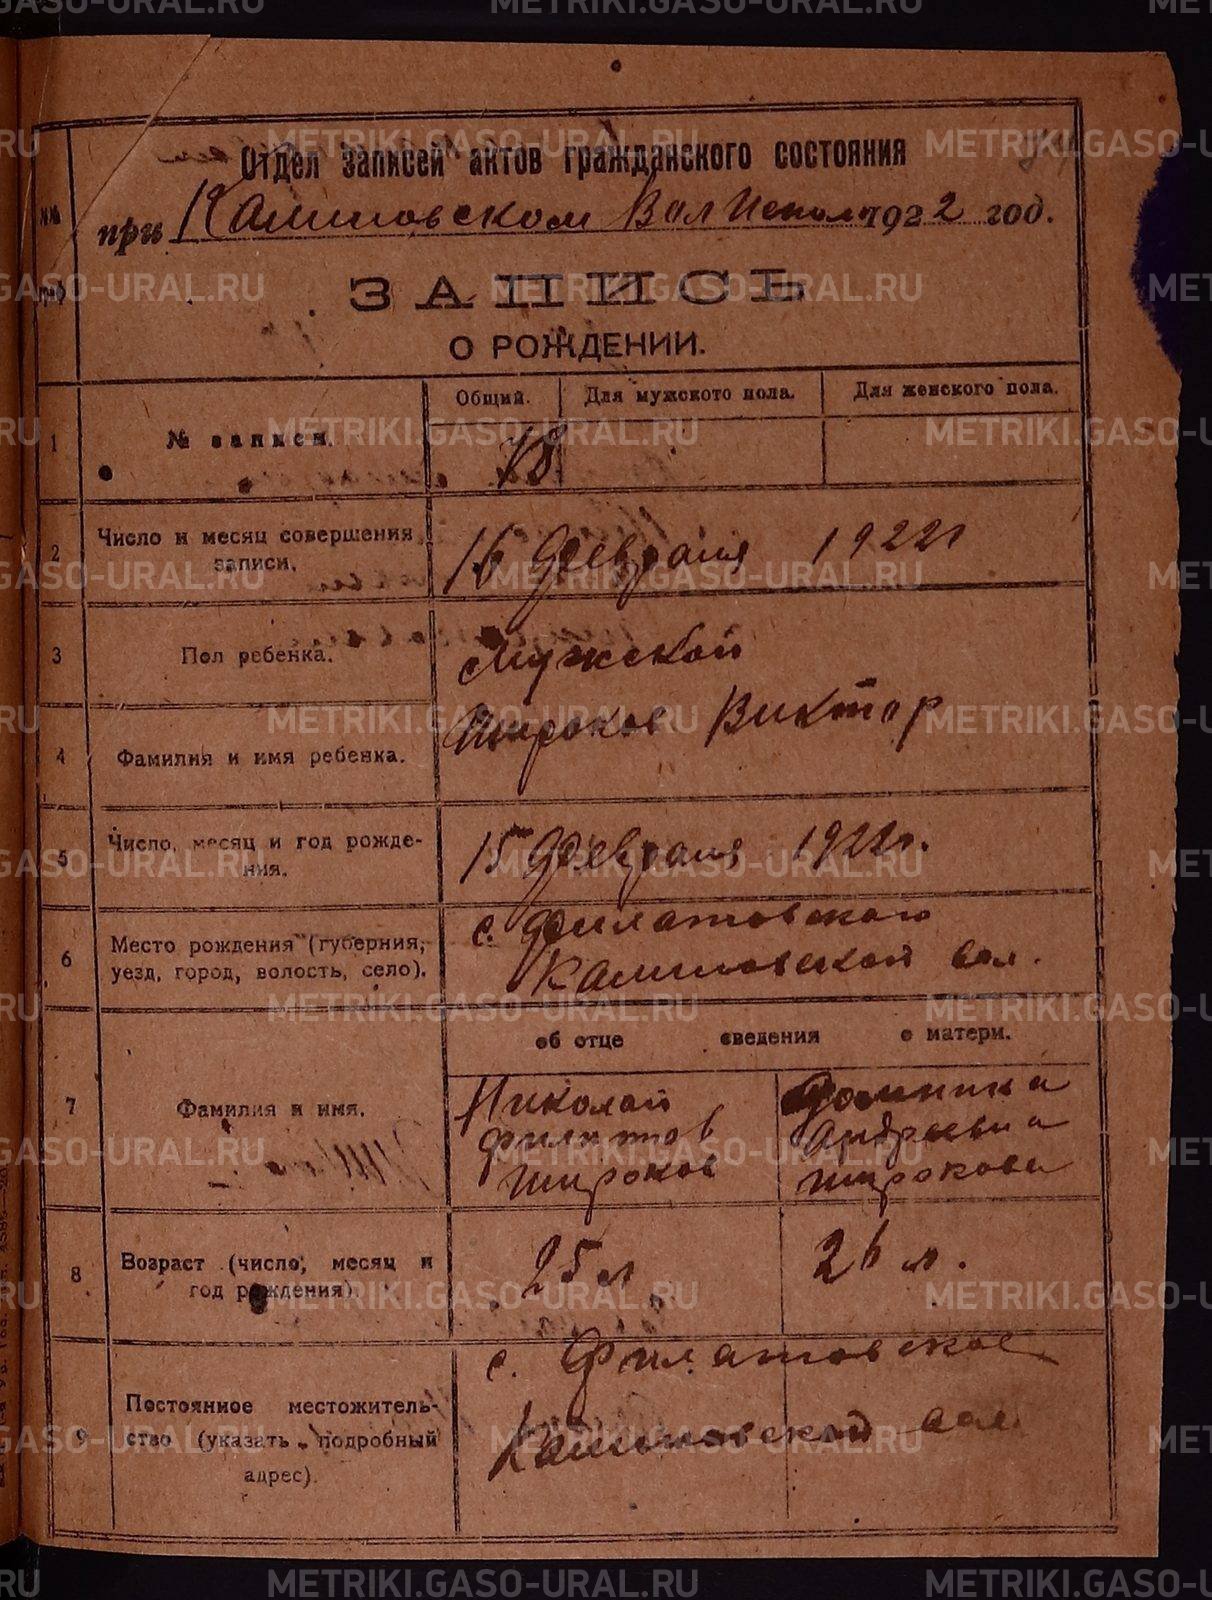 METRIKI.GASO-URAL.RU
Отдел записей актов гражданского состояния
при Камышовском ВолИсполк 1922 год.
ЗАПИСЬ
О РОЖДЕНИИ.
Общий. Для мужского пола. Для женского пола.
1 № записи. 78
2 Число и месяц совершения записи. 16 февраля 1922 г
3 Пол ребенка. Мужской
4 Фамилия и имя ребенка. Широков Виктор
5 Число, месяц и год рожде-
ния. 15 февраля 1922 г.
6 Место рождения (губерния, с. Филатовского
уезд, город, волость, село). вол.
об отце сведения о матери.
7 Фамилия и имя. Николай Домника
Филиппов Андреевна
Широков Широкова
8 Возраст (число, месяц и
год рождения). 25 л 26 л.
9 Постоянное местожитель-
ство (указать подробный
адрес). с. Филатовское
вол